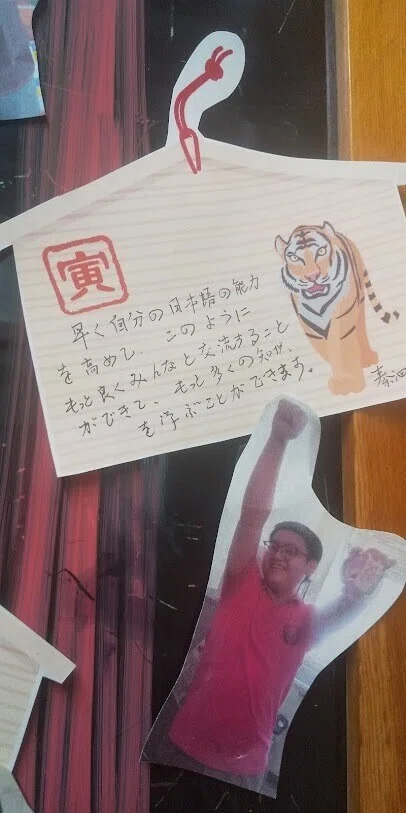 寅
早く自分の日本語の能力
を高めて、このように
もっと良くみんなと交流すること
ができて、もっと多くの知せ、
を学ぶことができます。